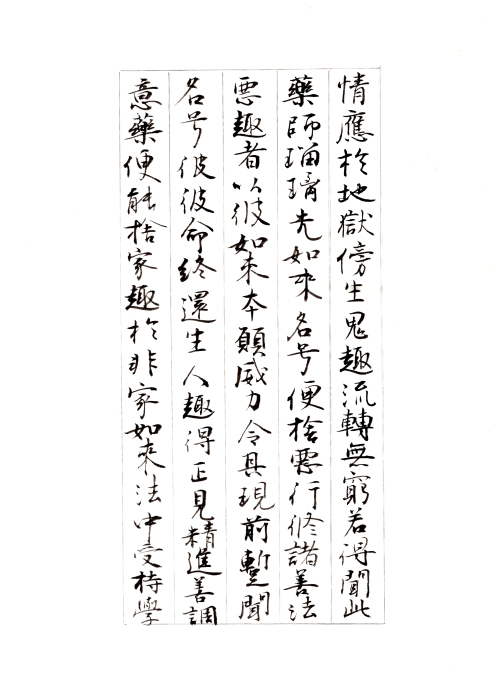 情應於地獄傍生鬼趣流轉無窮若得聞此
藥師瑠璃光如來名号便捨惡行修諸善法
惡趣者以彼如來本願威力令其現前暫聞
名号彼彼命終還生人趣得正見精進善調
意藥便能捨家趣於非家如來法中受持學